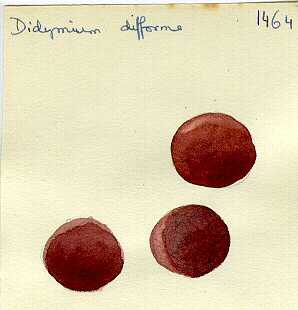 Didymium difforme 1464